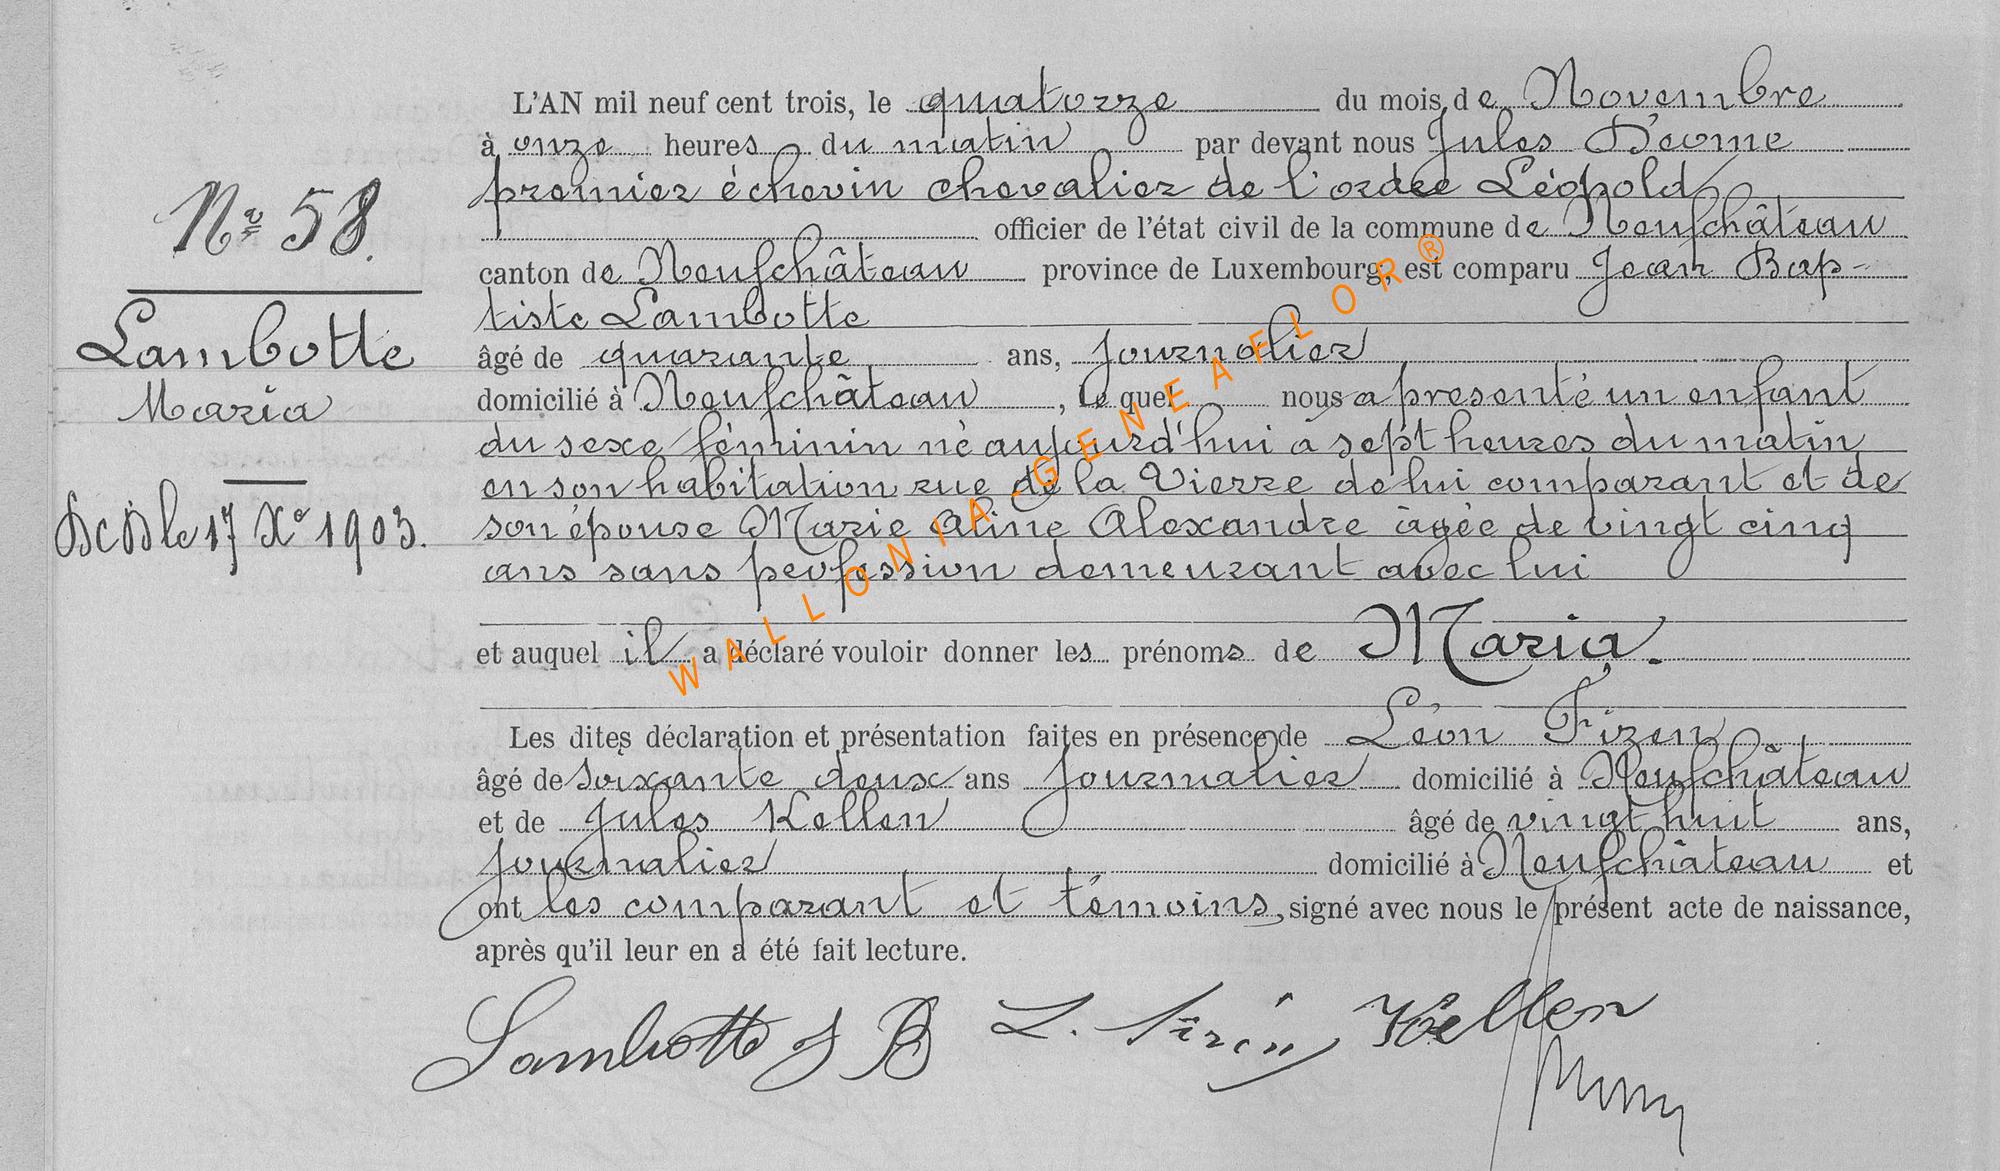 Nº 58.
Lambotte
Maria
Dcd le 17 Xº 1903.
L'AN mil neuf cent trois, le quatorze du mois de Novembre
à onze heures du matin par devant nous Jules
premier échevin chevalier de l'ordre Léopold
officier de l'état civil de la commune de Neufchâteau
canton de Neufchâteau province de Luxembourg, est comparu Jean Bap-
tiste Lambotte
âgé de quarante ans, journalier
domicilié à Neufchâteau, lequel nous a presenté un enfant
du sexe féminin né aujourd'hui à sept heures du matin
en son habitation rue de la Vierre de lui comparant et de
son épouse Marie Aline Alexandre âgée de vingt cinq
ans sans profession demeurant avec lui
et auquel il a déclaré vouloir donner les prénoms de Maria.
Les dites déclaration et présentation faites en présence de Léon Fizen
âgé de soixante deux ans journalier domicilié à Neufchâteau
et de Jules Kellen âgé de vingt huit ans,
journalier domicilié à Neufchâteau et
ont les comparant et témoins, signé avec nous le présent acte de naissance,
après qu'il leur en a été fait lecture.
Lambotte J B L. Fizen Kellen
WALLONIA-GENEAFLOR®